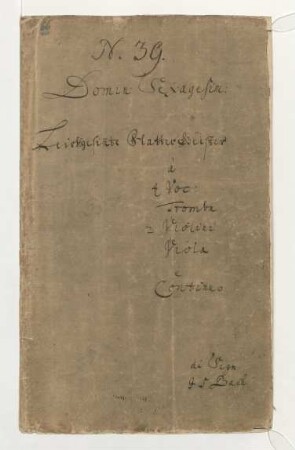 N. 39.
Domin: Sexagesim:
Leichtgesinte Flatter Geister
à
4 Voc:
Tromba
2 Violini
Viola
e
Continuo
di Sign
J. S. Bach